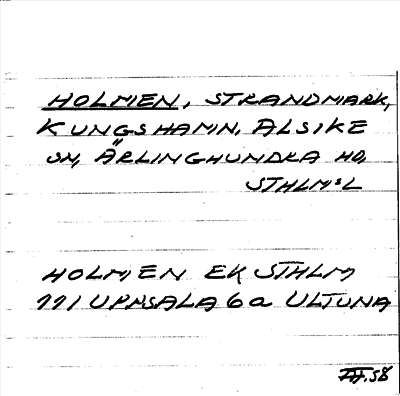 HOLMEN, STRANDMARK,
KUNGSHAMN, ALSIKE
SN, ÄRLINGHUNDRA HD,
STHLM:S L
HOLMEN EK STHLM
111 UPPSALA 6a ULTUNA